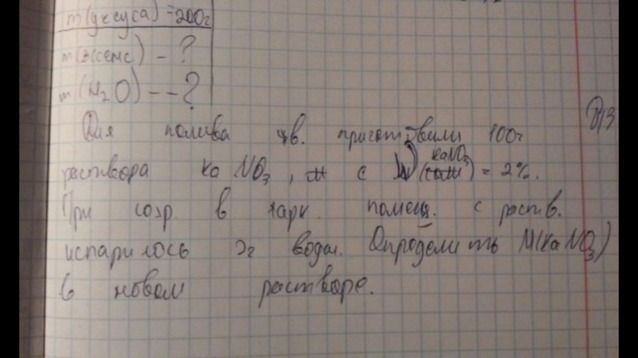 m(уксуса) = 200г
m(эсенс) - ?
m(H₂O) - - ?
Для полива цв. приготовили 100г
ДЗ
раствора ка NO₃, с W(каNO₃) = 2%.
При сохр. в жарк. помещ. с раств.
испарилось 2г воды. Определить M(каNO₃)
в новом растворе.